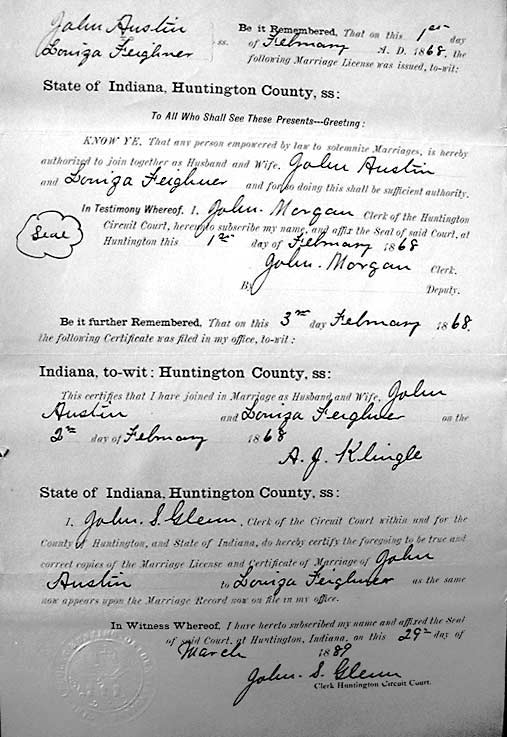 John Austin
Louiza Feighner
ss.
Be it Remembered, That on this 1st day
of February A. D. 1868, the
following Marriage License was issued, to-wit:
State of Indiana, Huntington County, ss:
To All Who Shall See These Presents---Greeting:
KNOW YE. That any person empowered by law to solemnize Marriages, is hereby
authorized to join together as Husband and Wife, John Austin
and Louiza Feighner and for so doing this shall be sufficient authority.
In Testimony Whereof, I, John Morgan Clerk of the Huntington
Circuit Court, hereunto subscribe my name, and affix the Seal of said Court, at
Huntington this 1st day of February 1868
Seal
John Morgan Clerk.
By Deputy.
Be it further Remembered, That on this 3rd day February 1868.
the following Certificate was filed in my office, to-wit:
Indiana, to-wit: Huntington County, ss:
This certifies that I have joined in Marriage as Husband and Wife, John
Austin and Louiza Feighner on the
2nd day of February 1868
A. J. Klingle
State of Indiana, Huntington County, ss:
I, John S. Glenn, Clerk of the Circuit Court within and for the
County of Huntington, and State of Indiana, do hereby certify the foregoing to be true and
correct copies of the Marriage License and Certificate of Marriage of John
Austin to Louiza Feighner as the same
now appears upon the Marriage Record now on file in my office.
In Witness Whereof, I have hereto subscribed my name and affixed the Seal
of said Court, at Huntington, Indiana, on this 29th day of
March 1889
John S. Glenn
Clerk Huntington Circuit Court.